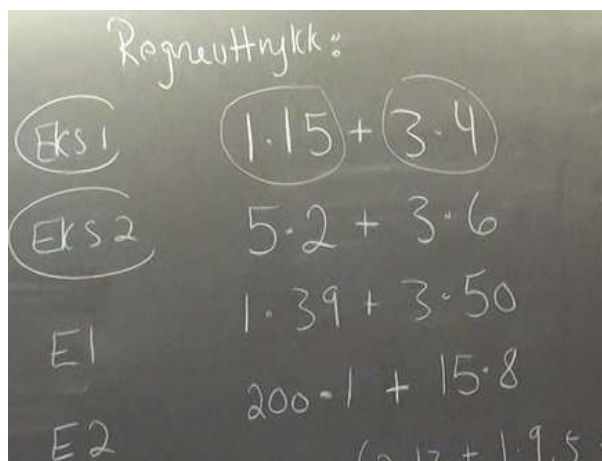 Regneuttrykk:
EKS1 1·15 + 3·4
EKS2 5·2 + 3·6
E1 1·39 + 3·50
E2 200·1 + 15·8